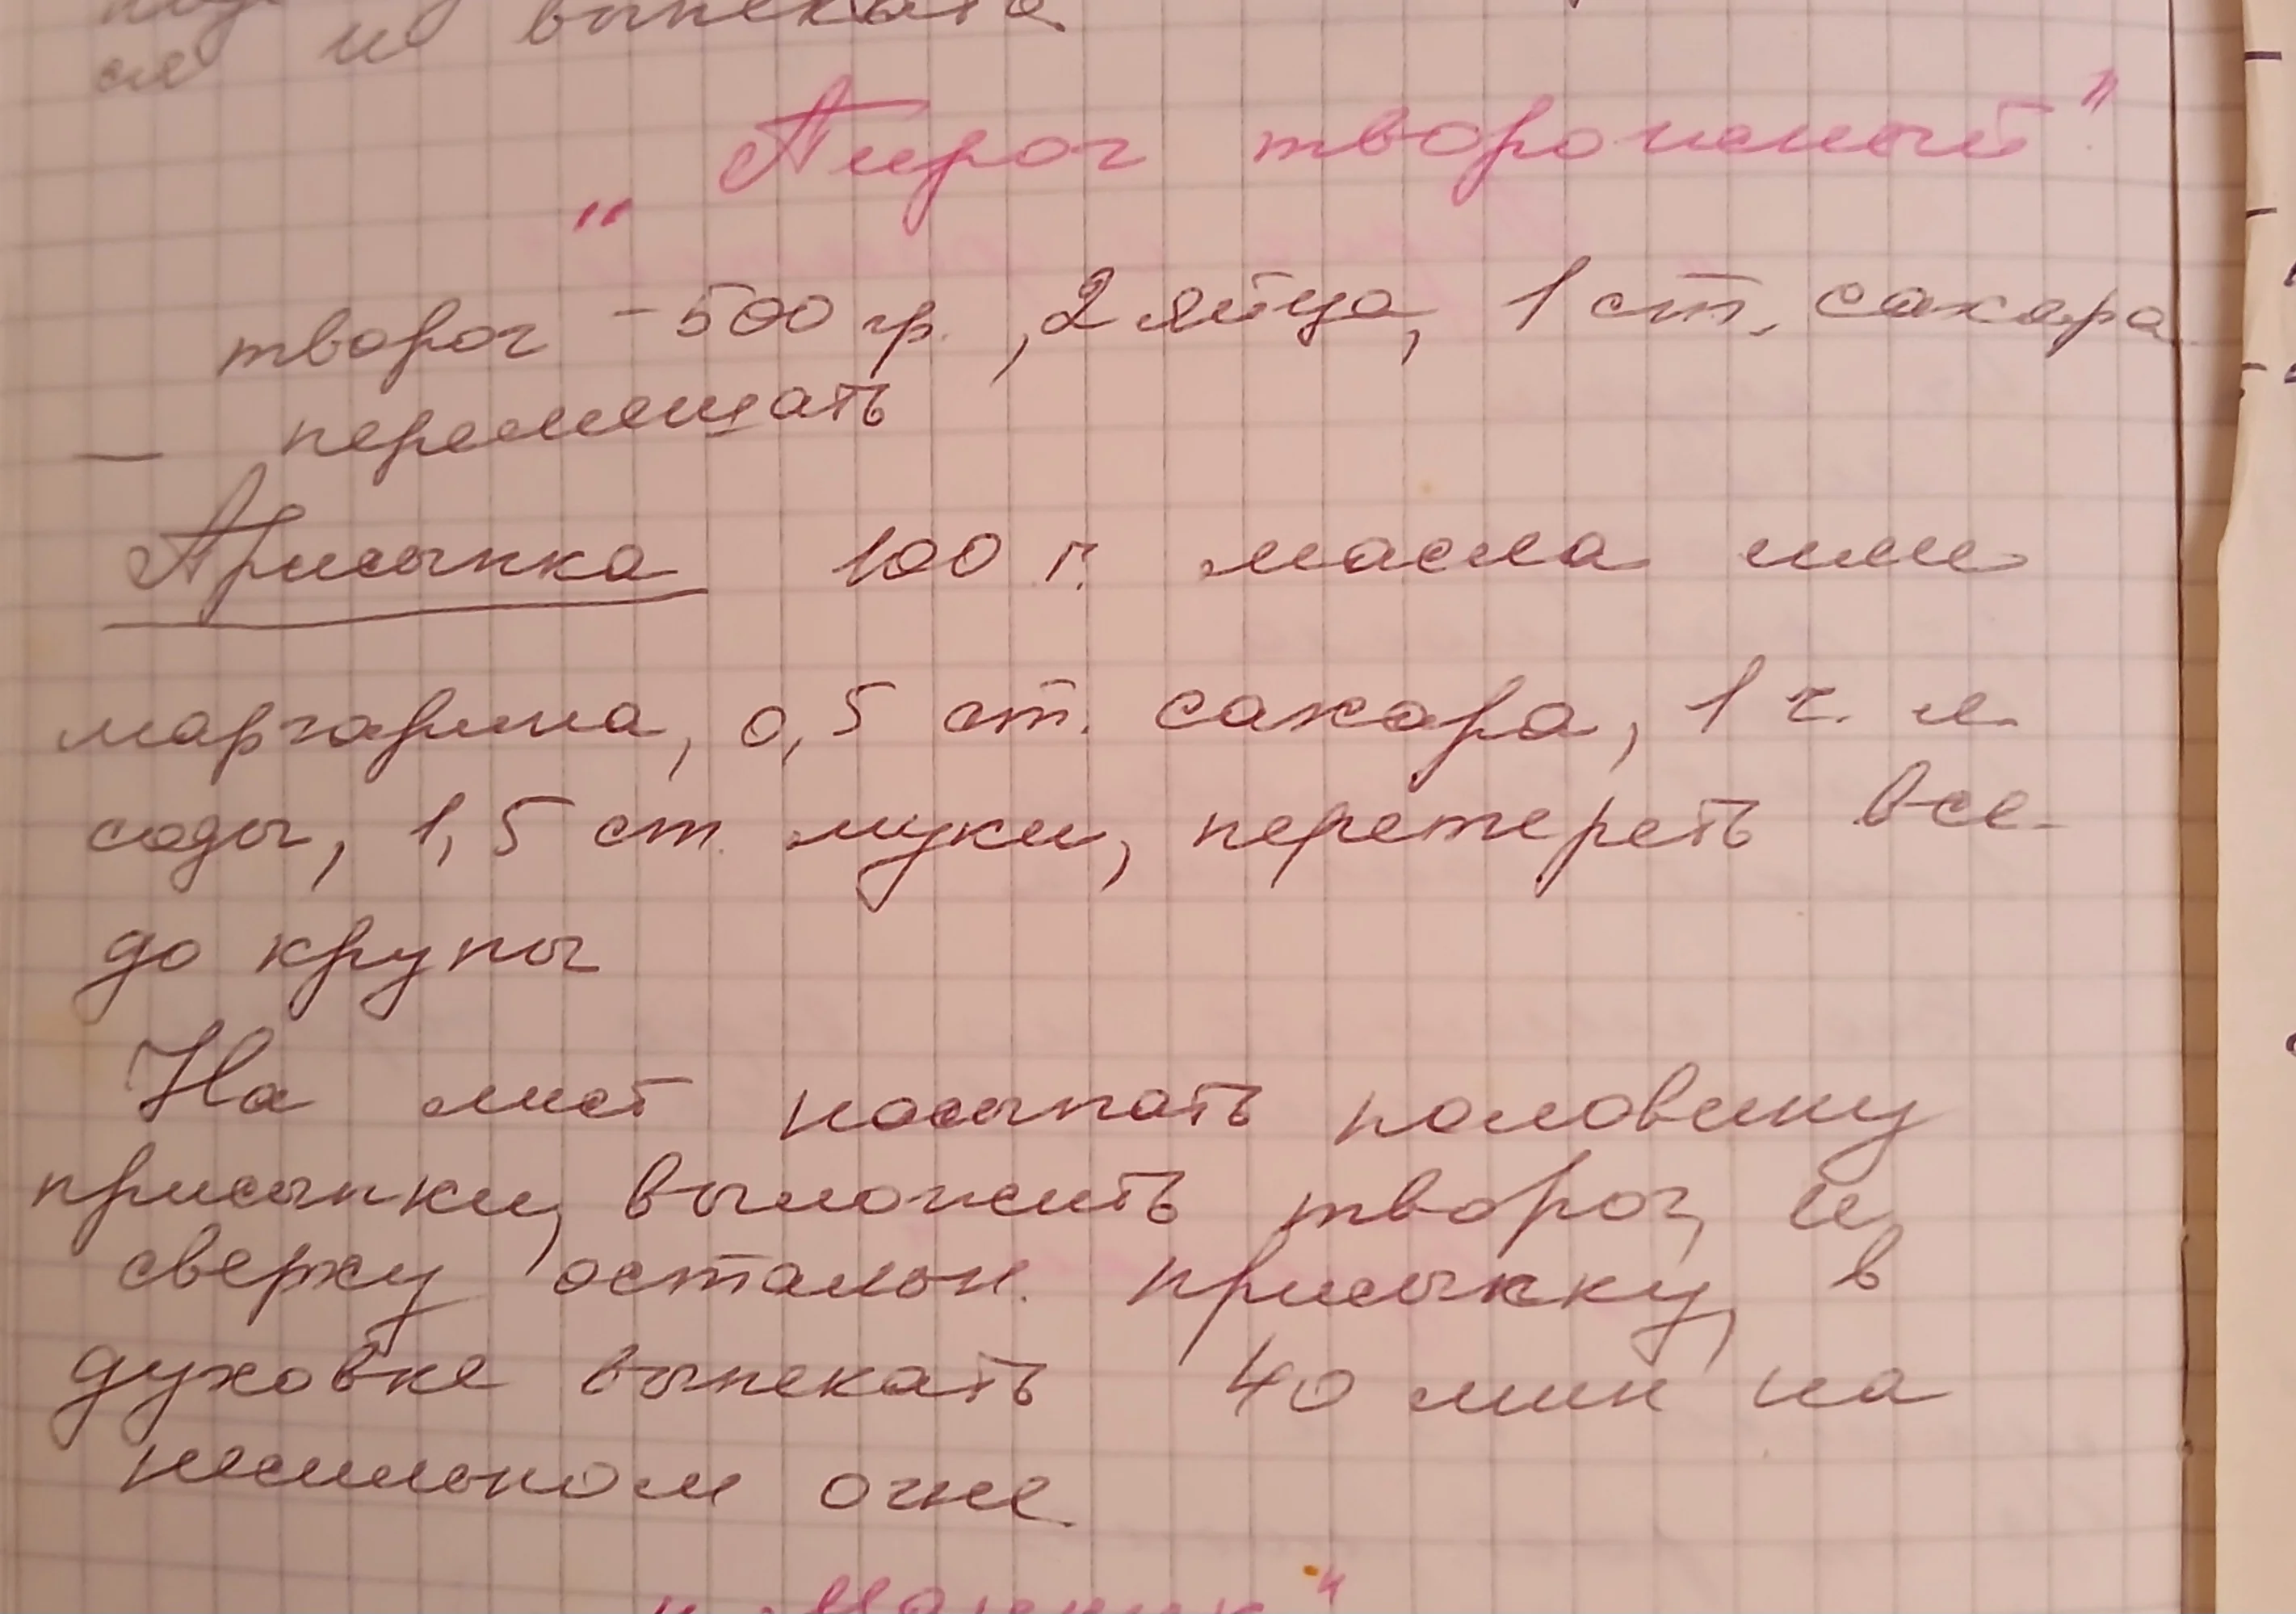 ся и выпекать
„Пирог творожный"
творог - 500 гр., 2 яйца, 1 ст. сахара
— перемешать
Присыпка 100 г. масла или
маргарина, 0,5 ст. сахара, 1 ч. л.
соды, 1,5 ст. муки, перетереть все
до крупы
На лист посыпать половину
присыпки, выложить творог, и,
сверху остальн. присыпку, в
духовке выпекать 40 мин на
несильном огне
„Манник"